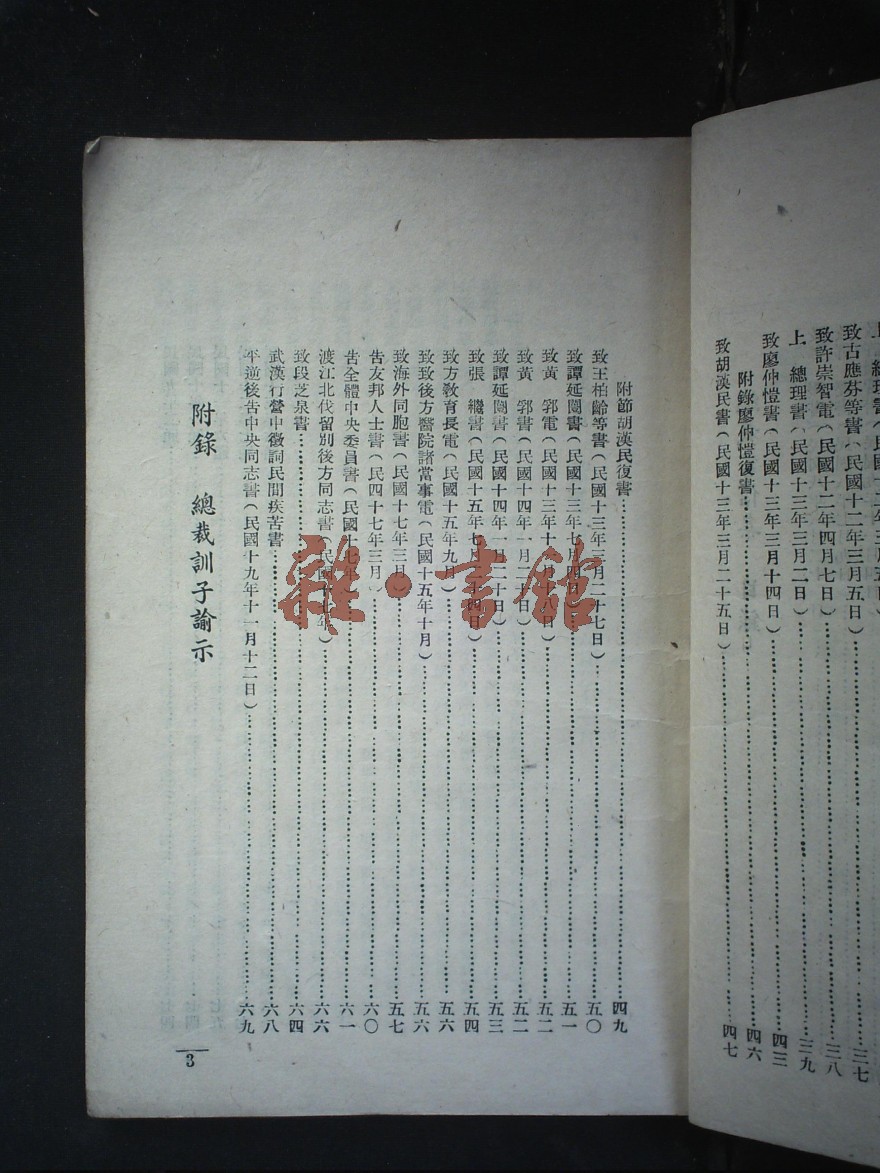 上 總理書(民國十
致古應芬等書(民國十二年三月五日)……三七
致許崇智電(民國十二年四月七日)……三八
上 總理書(民國十三年三月二日)……三九
致廖仲愷書(民國十三年三月十四日)……四三
附錄廖仲愷復書……四六
致胡漢民書(民國十三年三月二十五日)……四七
附節胡漢民復書……四九
致王柏齡等書(民國十三年三月二十七日)……五〇
致譚延闓書(民國十三年七月四日)……五一
致黃 郛電(民國十三年十一月十八日)……五二
致黃 郛書(民國十四年一月二十日)……五二
致譚延闓書(民國十四年一月二十日)……五三
致張 繼書(民國十五年七月 四日)……五四
致方教育長電(民國十五年九月)……五六
致致後方醫院諸當事電(民國十五年十月)……五六
致海外同胞書(民國十七年三月)……五七
告友邦人士書(民四十七年三月)……六〇
告全體中央委員書(民國十七年 )……六一
渡江北伐留別後方同志書(民國 年)……六六
致段芝泉書……六四
武漢行營中徵詢民間疾苦書……六八
平逆後告中央同志書(民國十九年十一月十二日)……六九
附錄 總裁訓子諭示
3
雜·書館